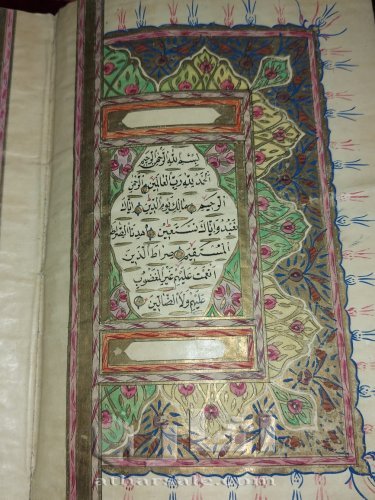 بسم الله الرحمن الرحيم
الحمد لله رب العالمين الرحمن
الرحيم مالك يوم الدين إياك
نعبد وإياك نستعين اهدنا الصراط
المستقيم صراط الذين
أنعمت عليهم غير المغضوب
عليهم ولا الضالين